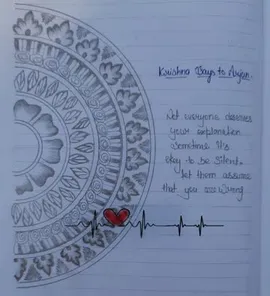 Krishna Says to Arjun.
Not everyone deserves
your explanation
sometimes It's
okey to be silent.
let them assume
that you are wrong